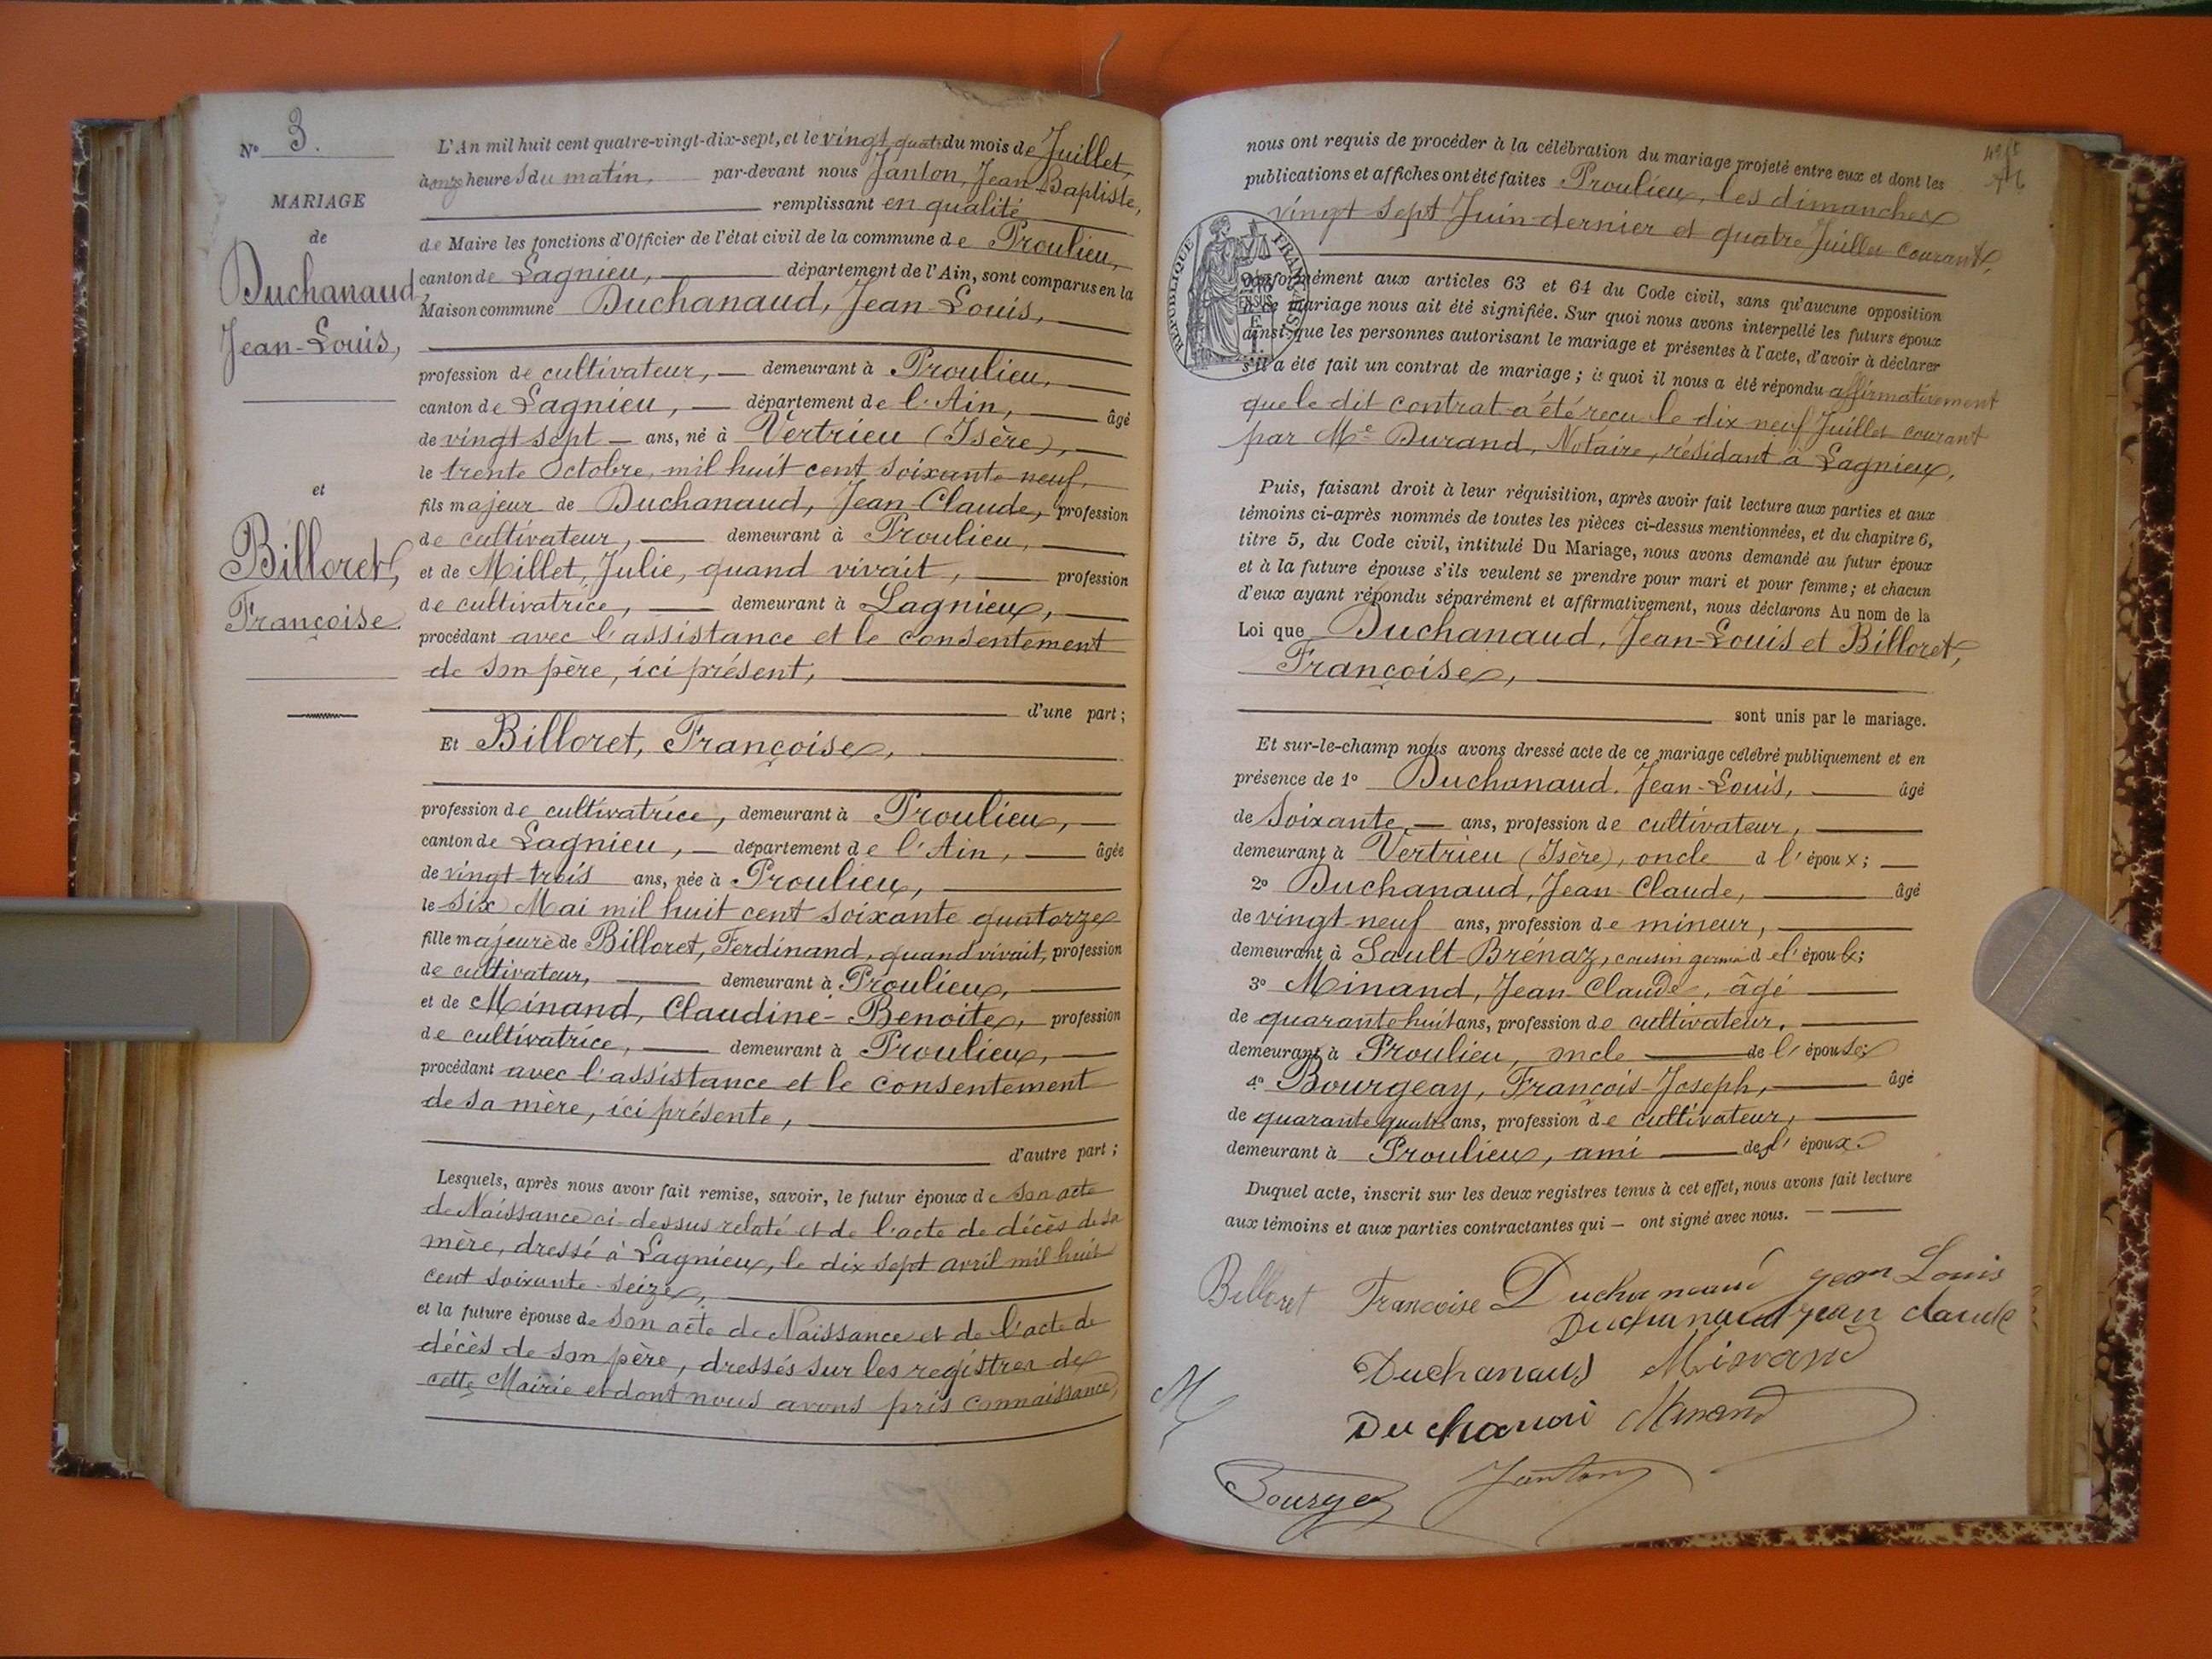 N° 3.
MARIAGE
de
Duchanaud
Jean-Louis,
et
Billoret,
Françoise
L'An mil huit cent quatre-vingt-dix-sept, et le vingt quatre du mois de Juillet,
à onze heures du matin, par-devant nous Janton, Jean-Baptiste,
remplissant en qualité
de Maire les fonctions d'Officier de l'état civil de la commune de Proulieu,
canton de Lagnieu, département de l'Ain, sont comparus en la
Maison commune Duchanaud, Jean-Louis,
profession de cultivateur, demeurant à Proulieu,
canton de Lagnieu, département de l'Ain, âgé
de vingt sept ans, né à Vertrieu (Isère),
le trente Octobre, mil huit cent soixante neuf,
fils majeur de Duchanaud, Jean Claude, profession
de cultivateur, demeurant à Proulieu,
et de Millet, Julie, quand vivait, profession
de cultivatrice, demeurant à Lagnieu,
procédant avec l'assistance et le consentement
de son père, ici présent,
d'une part;
Et Billoret, Françoise,
profession de cultivatrice, demeurant à Proulieu,
canton de Lagnieu, département de l'Ain, âgée
de vingt-trois ans, née à Proulieu,
le six Mai mil huit cent soixante quatorze
fille majeure de Billoret, Ferdinand, quand vivait, profession
de cultivateur, demeurant à Proulieu,
et de Minand, Claudine-Benoite, profession
de cultivatrice, demeurant à Proulieu,
procédant avec l'assistance et le consentement
de sa mère, ici présente,
d'autre part;
Lesquels, après nous avoir fait remise, savoir, le futur époux de son acte
de Naissance ci-dessus relaté et de l'acte de décès de sa
mère, dressé à Lagnieu, le dix sept avril mil huit
cent soixante-seize,
et la future épouse de son acte de Naissance et de l'acte de
décès de son père, dressés sur les registres de
cette Mairie et dont nous avons pris connaissance,
nous ont requis de procéder à la célébration du mariage projeté entre eux et dont les
publications et affiches ont été faites Proulieu, les dimanches
vingt sept Juin dernier et quatre Juillet courant,
RÉPUBLIQUE FRANÇAISE
conformément aux articles 63 et 64 du Code civil, sans qu'aucune opposition
à ce mariage nous ait été signifiée. Sur quoi nous avons interpellé les futurs époux
ainsi que les personnes autorisant le mariage et présentes à l'acte, d'avoir à déclarer
s'il a été fait un contrat de mariage; à quoi il nous a été répondu affirmativement
que le dit contrat a été reçu le dix neuf Juillet courant
par Me Durand, Notaire, résidant à Lagnieu,
Puis, faisant droit à leur réquisition, après avoir fait lecture aux parties et aux
témoins ci-après nommés de toutes les pièces ci-dessus mentionnées, et du chapitre 6,
titre 5, du Code civil, intitulé Du Mariage, nous avons demandé au futur époux
et à la future épouse s'ils veulent se prendre pour mari et pour femme; et chacun
d'eux ayant répondu séparément et affirmativement, nous déclarons Au nom de la
Loi que Duchanaud, Jean-Louis et Billoret,
Françoise,
sont unis par le mariage.
Et sur-le-champ nous avons dressé acte de ce mariage célébré publiquement et en
présence de 1° Duchanaud, Jean-Louis, âgé
de soixante ans, profession de cultivateur,
demeurant à Vertrieu (Isère), oncle d l'époux;
2° Duchanaud, Jean-Claude, âgé
de vingt-neuf ans, profession de mineur,
demeurant à Sault-Brénaz, cousin germain d el'époux;
3° Minand, Jean-Claude, âgé
de quarante huit ans, profession de cultivateur,
demeurant à Proulieu, oncle de l'épouse;
4° Bourgeay, François-Joseph, âgé
de quarante quatre ans, profession de cultivateur,
demeurant à Proulieu, ami de l'époux.
Duquel acte, inscrit sur les deux registres tenus à cet effet, nous avons fait lecture
aux témoins et aux parties contractantes qui — ont signé avec nous.
Billoret Francoise Duchanaud jean Louis
Duchanaud jean claude
Duchanaud Minand
Duchanau Minand
Bourge Janton